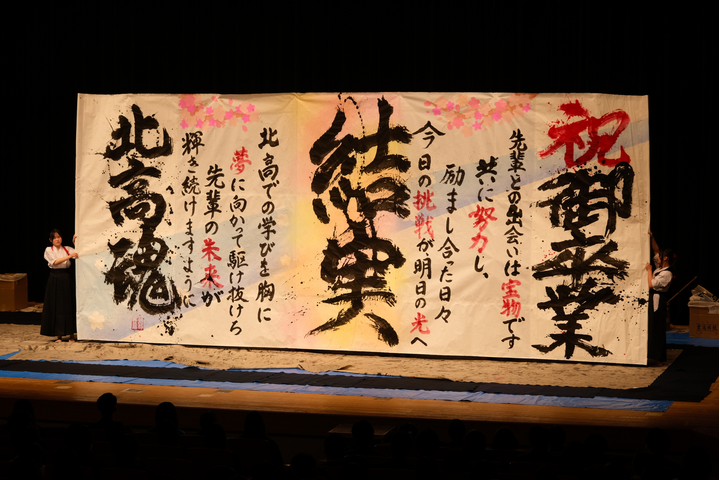 祝御卒業
先輩との出会いは宝物です
共に努力し、
励まし合った日々
今日の挑戦が、明日の光へ
結実
北高での学びを胸に
夢に向かって駆け抜けろ
先輩の未来が
輝き続けますように
北高魂